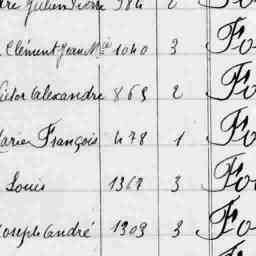 Julien Pierre 984 2
Clément Jean Mie 1040 3 Fo
Victor Alexandre 863 2 Fo
Marie François 478 1 Fo
Louis 1367 3 Fo
Joseph André 1303 3 Fo